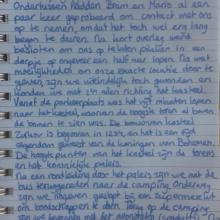 Ondertussen hadden Bram en Mario al een
paar keer geprobeerd om contact met ons
op te nemen, omdat het toch wel erg lang
begon te duren. Na kort overleg werd
besloten om ons op te laten pikken in een
dorpje op ongeveer een half uur lopen. Na wat
moeilijkheden om onze exacte locatie door te
geven zijn we uiteindelijk toch gevonden en
konden we met z'n allen richting het kasteel.
Vanaf de parkeerplaats was het vijf minuten lopen
naar het kasteel, waarvan de hoogste toren al boven
de bomen te zien was. De bouw van kasteel
is begonnen in 1234, en het is een tijd
eigendom geweest van de koningen van Bohemen.
De hoogste punten van het kasteel zijn de torens
en het koninklijk paleis.
Na een rondleiding door het paleis zijn we met de
bus teruggereden naar de camping. Onderweg
zijn we gestopt bij een supermarkt
om boodschappen te doen. Terug op de camping
zijn we begonnen met het avondeten